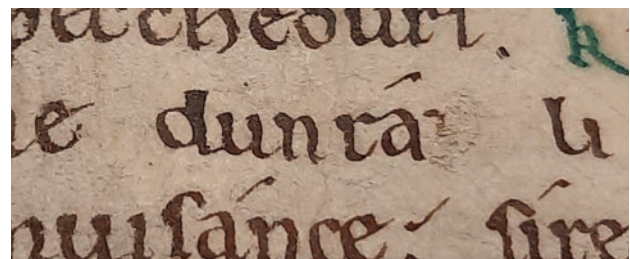 pecheduri.
e dunrá li
nuisánce; sire